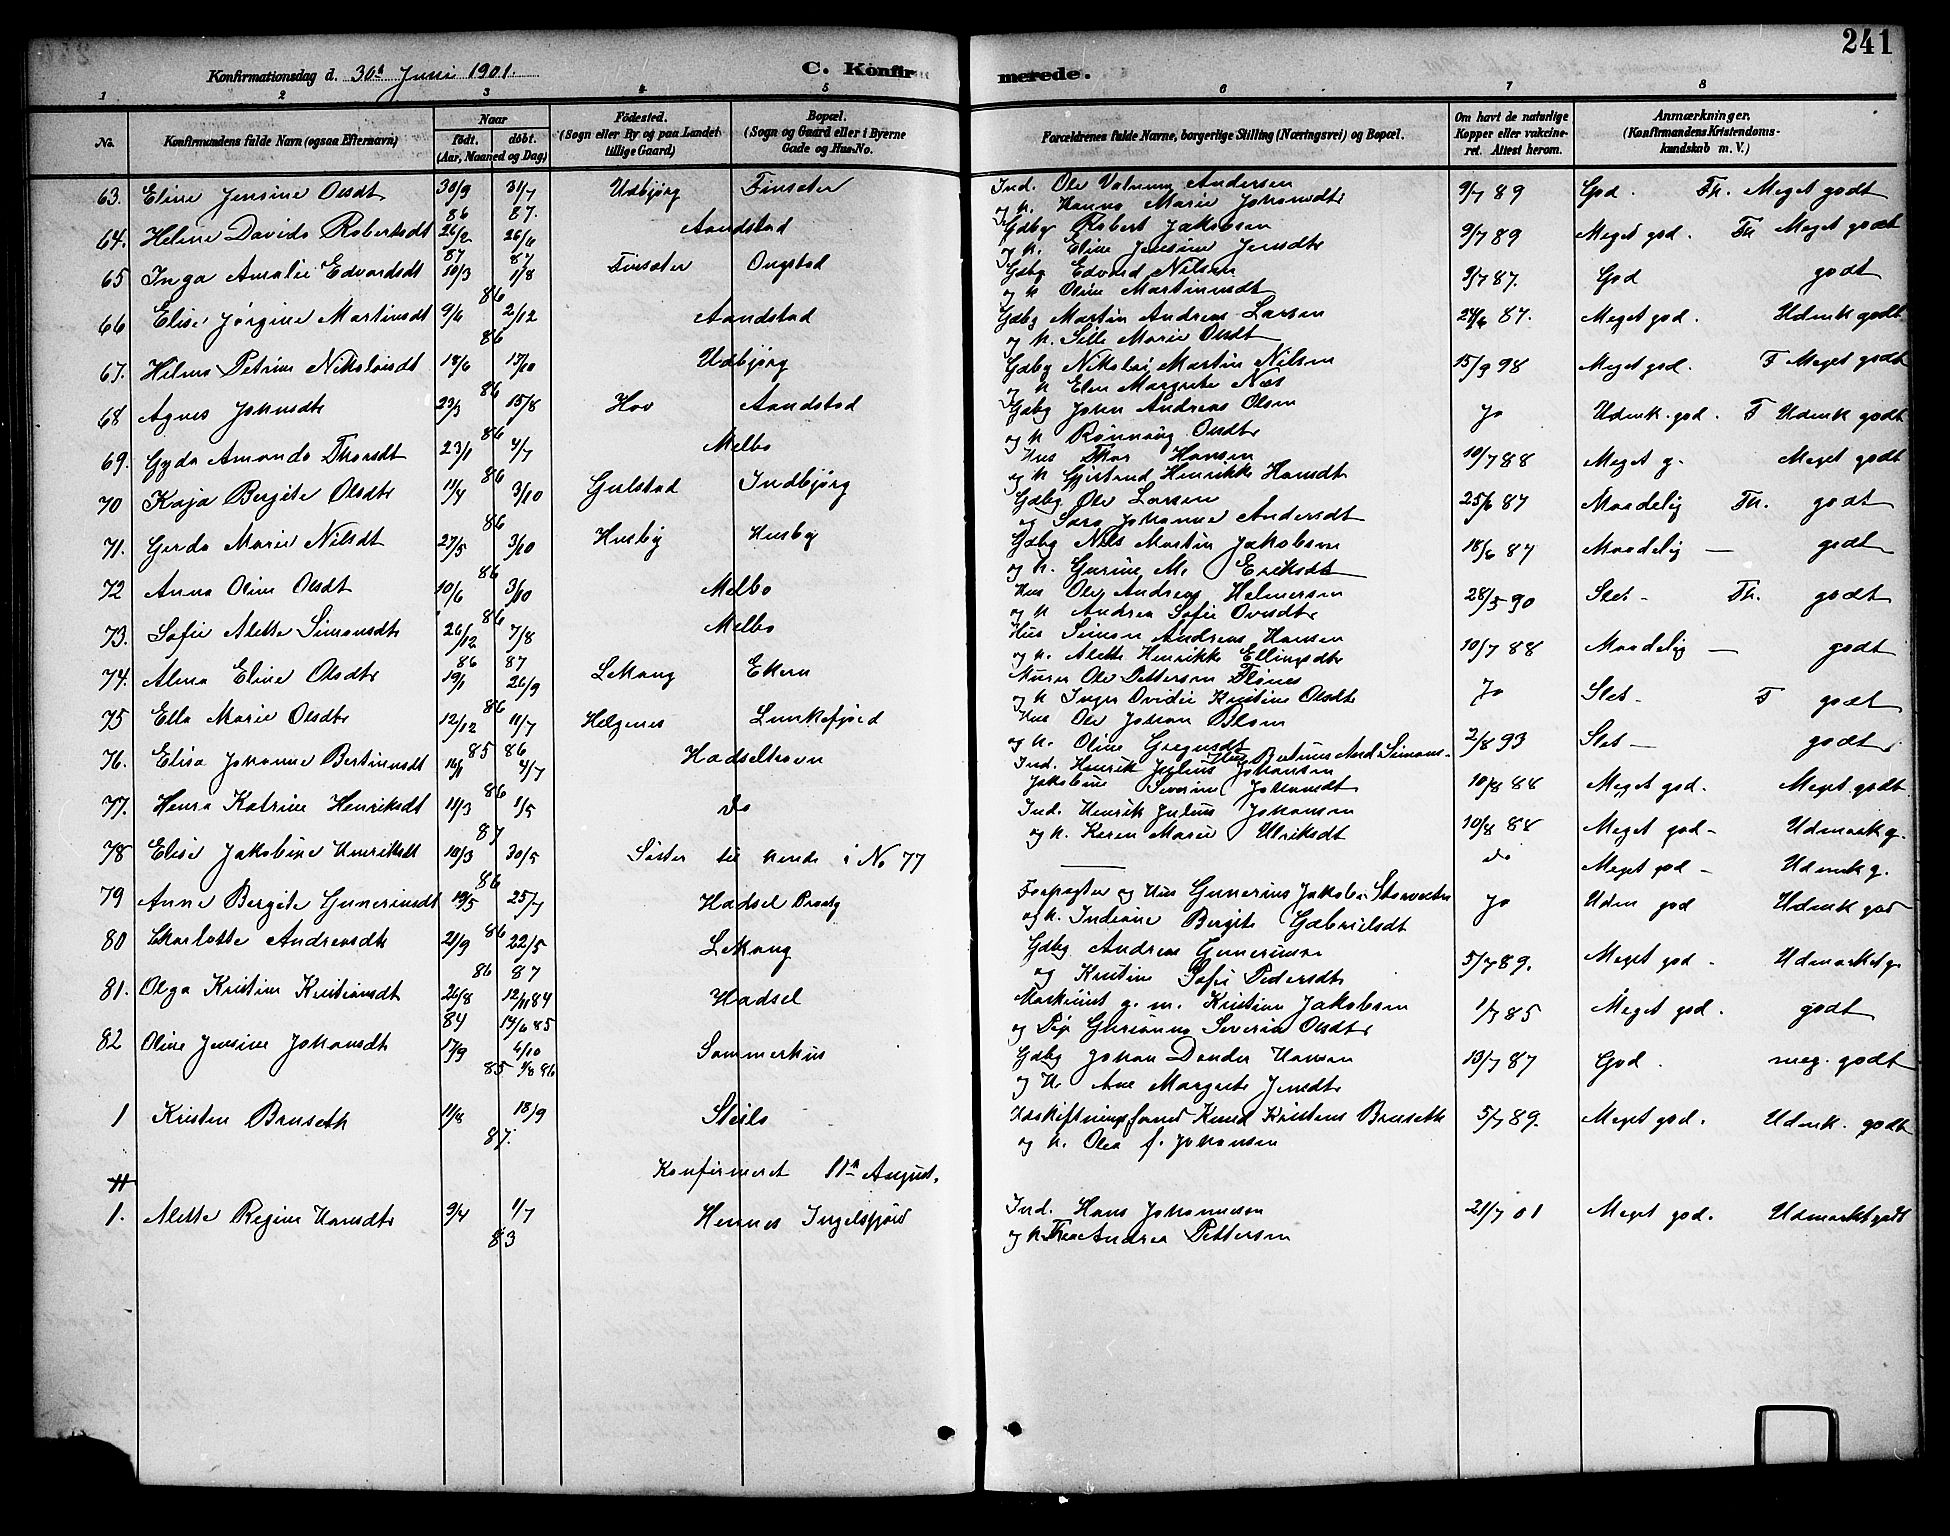 241
Konfirmationsdag d. 30d Juni 1901. C. Konfirmerede.
1 2 3 4 5 6 7 8
No. Konfirmandens fulde Navn (ogsaa Efternavn) Naar født. døbt. (Aar, Maaned og Dag) Fødested. (Sogn eller By og paa Landet tillige Gaard) Bopæl. (Sogn og Gaard eller i Byerne Gade og Hus-No. Forældrenes fulde Navne, borgerlige Stilling (Næringsvei) og Bopæl. Om havt de naturlige Kopper eller vakcineret. Attest herom. Anmærkninger. (Konfirmandens Kristendomskundskab m. V.)
63. Eline Jensine Olsdt 30/9 86 31/7 87. Udbjørg Finsæter Ind. Ole Andersen og h. Hanna Marie Johansdtr 9/7 89 God. Fh. Meget godt
64. Helene Davida Robertsdt 26/2 87 26/6 87 Aandstad Gdbg Robert Jakobsen og h. Eline Jensine Jensdtr 9/7 89 Meget god. Fh Meget godt
65 Inga Amalie Edvardsdt 10/3 1/8 86 Finsæter Ongstad Gdbg Edvard Nilsen og h Oline Martinusdt 9/7 87. God godt
66 Elise Jørgine Martinsdt 9/6 2/12 86 Aandstad Gdbg Martin Andreas Larsen og h. Sille Marie Olsdt 24/6 87. Meget god. Udmk godt
67. Hilma Petrine Nikolaisdt 18/6 13/10 86 Udbjørg Gdbg Nikolai Martin Nilsen og h Elen Margrete Næs 15/9 98 Meget god. F Meget godt
68 Agnes Johnsdtr 23/3 15/8 86 Hov Aandstad Gdbg John Andreas Olsen og h Rønnaug Olsdtr Ja Udmk. god. F Udmk godt
69. Gyda Amanda Thorsdt 23/1 4/7 86 Melbo Hus Thor Hansen og h Gjertrud Henrikke Hansdt 10/7 88 Meget g. Meget godt
70 Kaja Bergite Olsdtr 11/4 3/10 86 Gulstad Indbjørg Gdbg Ole Larsen og Sara Johanne Andersdt 25/6 87 Maadelig Fh. godt
71. Gerda Marie Nilsdt 27/5 3/10 86 Husby Husby Gdbg Nils Martin Jakobsen og h. Gurine M. Eriksdt 18/6 87 Maadelig — godt
72 Anna Oline Olsdt 10/6 3/10 86 Melbo Hus Ole Andreas Helmersen og h Andrea Sofie Ovesdtr 28/5 90 Slet - Fh. godt
73. Sofie Alette Simonsdt 26/12 86 7/8 87 Melbo Hus Simon Andreas Hansen og h. Alette Henrikke Ellingsdtr 10/7 88 Maadelig — godt
74. Alma Eline Olsdtr 19/1 26/9 86 Lekang Ekern Murer Ole Pettersen Flønes og h Inger Ovidie Kristine Olsdtr Ja Slet - F godt
75 Ella Marie Olsdtr 12/12 85 11/7 86 Helgenes Lunkefjord Hus Ole Johan Blom og h. Oline Gregusdt 2/8 93 Slet — godt
76. Elisa Johanne Bertinusdt 16/1 4/7 86 Hadselhavn Ind. Henrik Julius Johansen Hus Bertinus And. Simons- Jakobine Severine Johansdt 10/8 88 Meget god. Meget godt
77. Henra Katrine Henriksdt 11/3 1/5 87 do Ind. Henrik Julius Johansen og h. Karen Marie Ulriksdt 10/8 88 Meget god - Udmærk g.
78 Elise Jakobine Henriksdt 10/3 30/5 86 Søster til hende i No 77 — do Meget god - Udmk g.
79 Anne Bergite Guneriusdt 19/5 25/7 86 Hadsel Prestg Forpagter og Hus Gunerius Jakobsen og h. Indiane Bergite Gabrielsdt Ja Udm god Udmk god
80 Charlotte Andreasdt 21/9 86 22/5 87 Lekang Gdbg Andreas Gunerussen og Kristine Sofie Pedersdt 5/7 89. Meget god - Udmærket g.
81. Olga Kristine Kristiansdt 26/8 84 12/11 84 14/6 85 Hadsel Maskinist g. m. Kristian Jakobsen og Pige Gurianna Severin Olsdtr 1/7 85 Meget god. godt
82 Oline Jensine Johansdt 17/9 85 6/10 1/8 86 Sommerhus Gdbg Johan Hansen og h. Ane Margrete Jensdtr 13/7 87 God. meg. godt
1 Kristen Bruseth 11/8 18/9 87. Steilo Udskiftningsformd Knud Kristens Bruseth og h. Olea f. Johansen 5/7 89. Meget god. Udmk. godt
Konfirmeret 11te August.
1. Alette Regine Hansdtr 9/4 1/7 83 Hennes Ingelsfjord Ind. Hans Johannesen og h. Thea Andrea Pettersen 21/7 01 Meget god. Udmærket godt